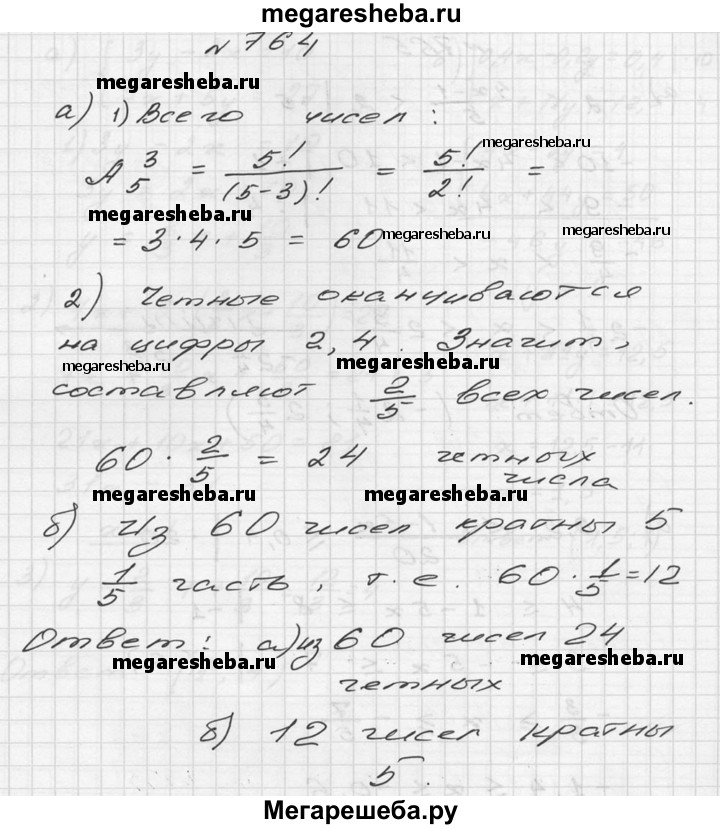 megaresheba.ru
№ 764
megaresheba.ru
а) 1) Всего чисел :
megaresheba.ru
A_5^3 = 5!/(5-3)! = 5!/2! =
megaresheba.ru
= 3·4·5 = 60
megaresheba.ru megaresheba.ru
2) Четные оканчиваются
на цифры 2, 4. Значит,
megaresheba.ru megaresheba.ru
составляют 2/5 всех чисел.
60 · 2/5 = 24 четных
числа
megaresheba.ru megaresheba.ru
б) Из 60 чисел кратны 5
1/5 часть, т.е. 60 · 1/5 = 12
Ответ: а) из 60 чисел 24
megaresheba.ru megaresheba.ru
четных
б) 12 чисел кратны
5.
Мегарешеба.ру